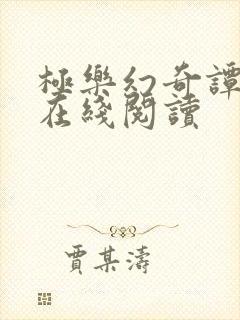 極樂幻奇譚
在綫閱讀
賈某濤